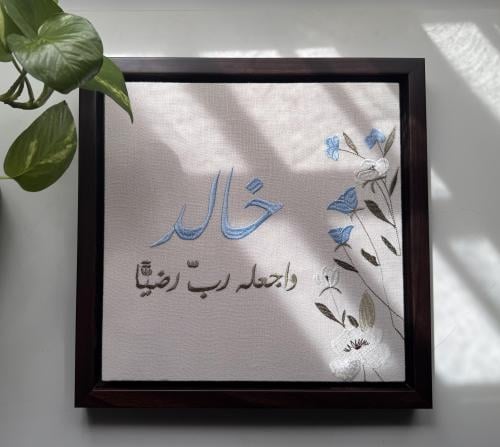 خالد
واجعله ربّ رضيًّا